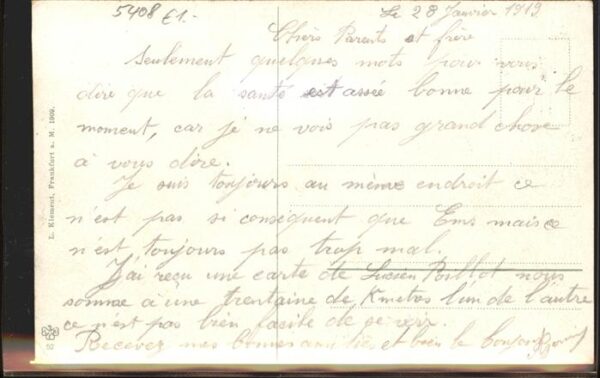 5408 €1.-
Le 28 Janvier 1919
Chers Parents et frère
Seulement quelques mots pour vous
dire que la santé est assée bonne pour le
moment, car je ne vois pas grand chose
à vous dire.
Je suis toujours au même endroit ce
n'est pas si consequent que Ems mais ce
n'est toujours pas trop mal.
J'ai reçu une carte de Lucien Poillot nous
somme à une trentaine de Kmetres l'un de l'autre
ce n'est pas bien facile de se voir.
Recevez mes bonnes amitiés et bien le bonjour
L. Klement, Frankfort a. M. 1909.